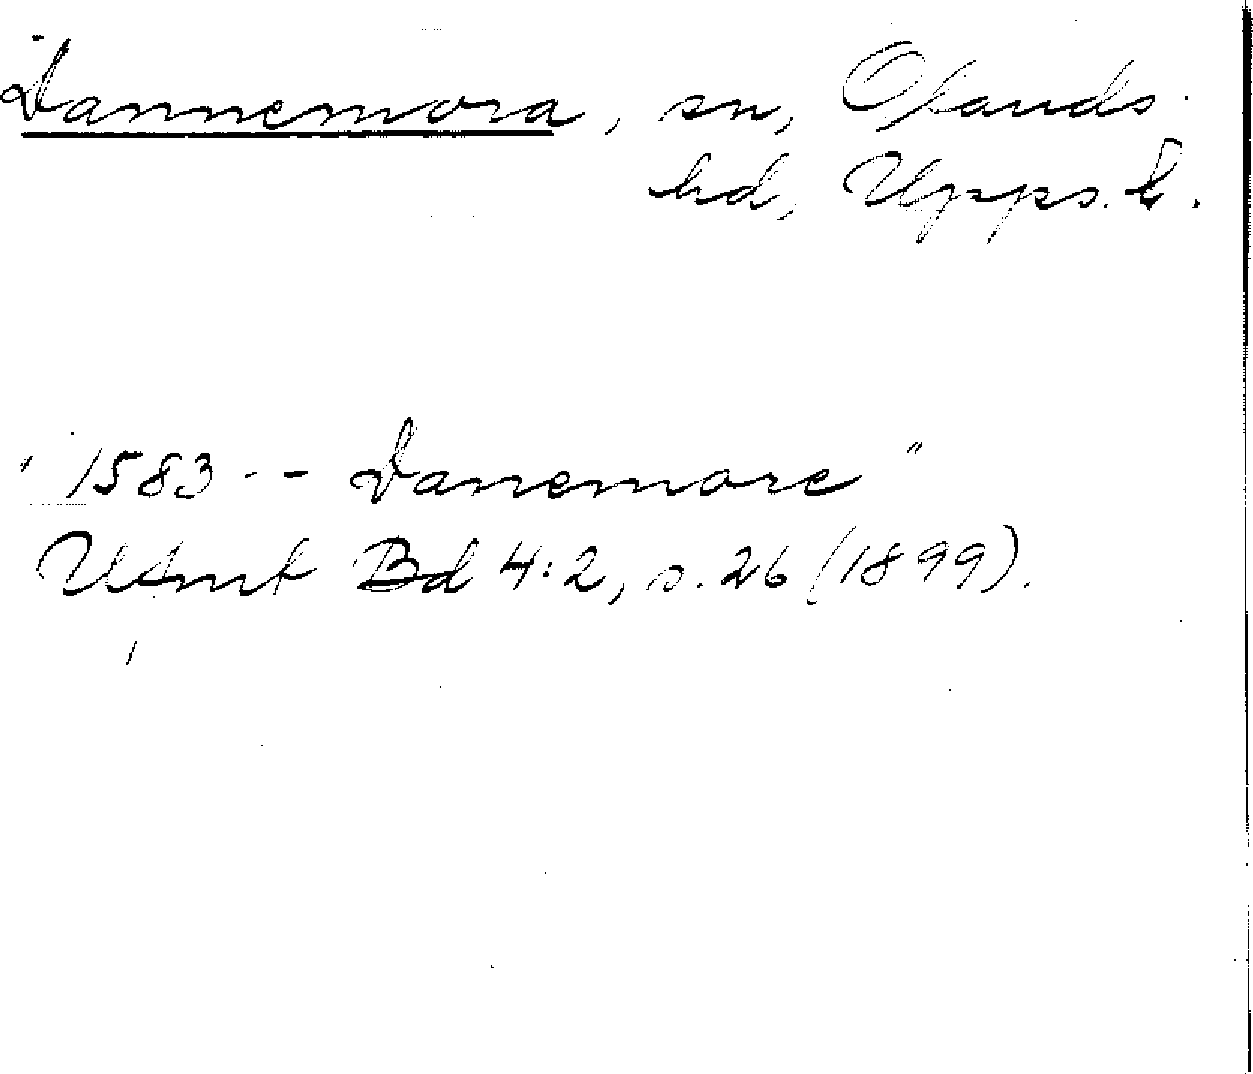 Dannemora, sn, Olands
hd, Upps. l.
"1583 -- Danemore"
Bd 4:2, s. 26 (1899).